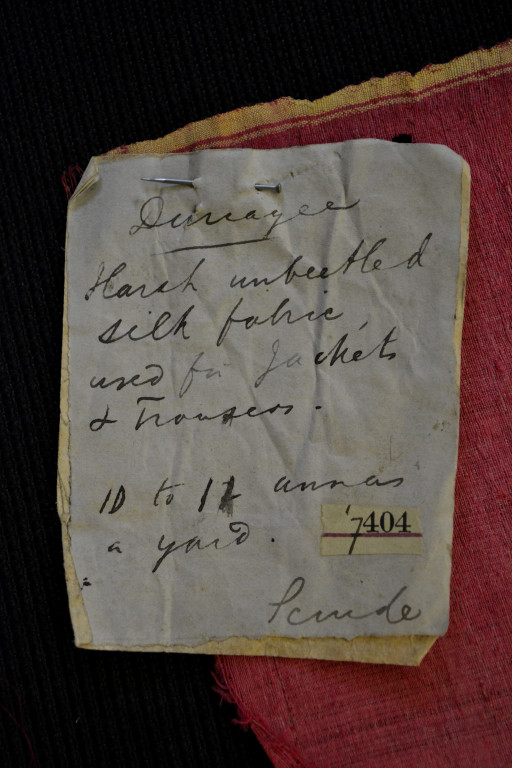 Harsh unbeetled
silk fabric,
used for Jackets
& Trousers.
10 to 12 annas
a yard.
7404
Scinde